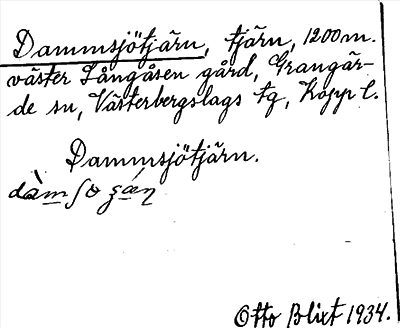 Dammsjötjärn, tjärn, 1200 m.
väster Långåsen gård, Grangär-
de sn, Västerbergslags tg, Kopp l.
Dammsjötjärn.
Otto Blixt 1934.